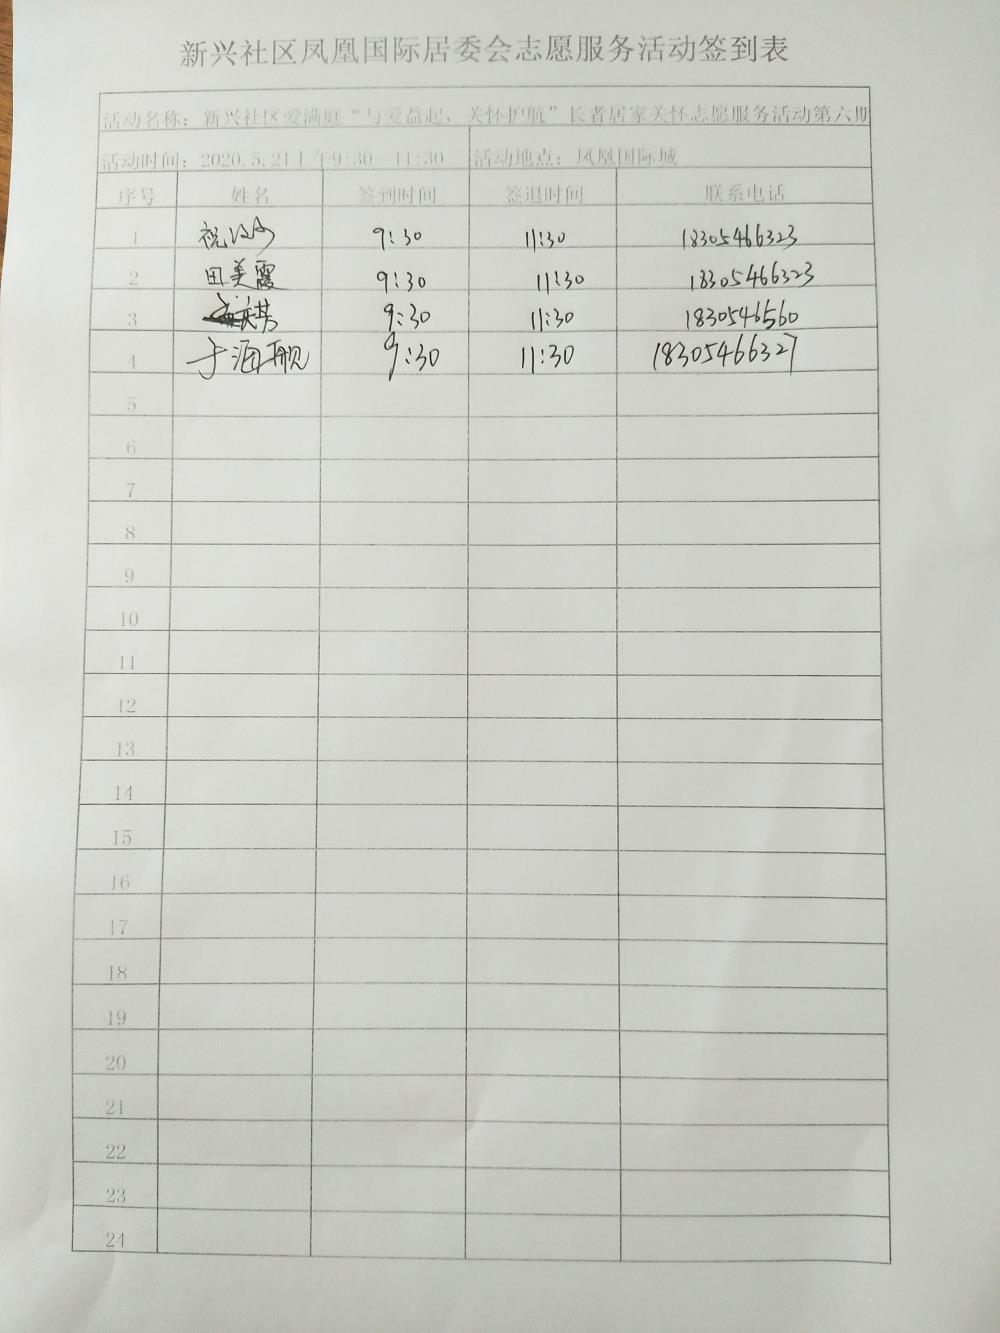 新兴社区凤凰国际居委会志愿服务活动签到表
活动名称：新兴社区爱满庭“与爱益起，关怀护航”长者居家关怀志愿服务活动第六期
活动时间：2020.5.21上午9:30—11:30 活动地点：凤凰国际城
序号 姓名 签到时间 签退时间 联系电话
1 祝 9:30 11:30 18305466323
2 田美霞 9:30 11:30 18305466323
3 9:30 11:30 1830546560
4 于海舰 9:30 11:30 18305466327
5
6
7
8
9
10
11
12
13
14
15
16
17
18
19
20
21
22
23
24